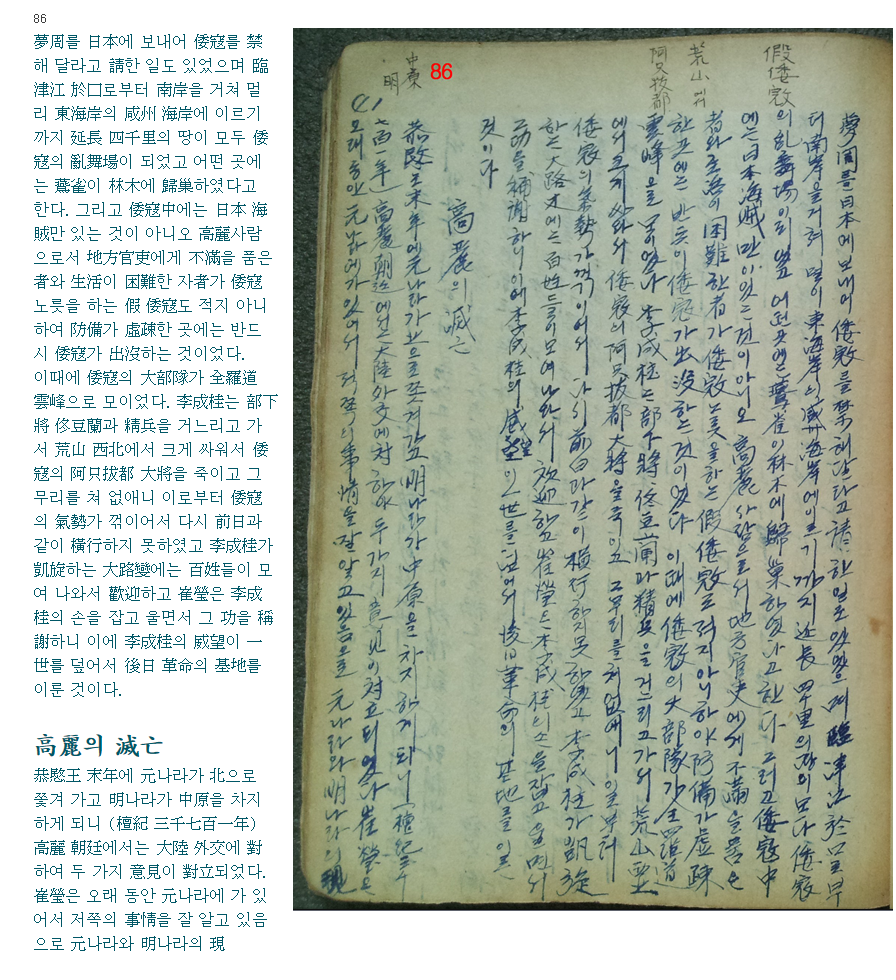 86
夢周를 日本에 보내어 倭寇를 禁
해 달라고 請한 일도 있었으며 臨
津江 於口로부터 南岸을 거쳐 멀
리 東海岸의 咸州 海岸에 이르기
까지 延長 四千里의 땅이 모두 倭
寇의 亂舞場이 되었고 어떤 곳에
는 鷰雀이 林木에 歸巢하였다고
한다. 그리고 倭寇中에는 日本 海
賊만 있는 것이 아니오 高麗사람
으로서 地方官吏에게 不滿을 품은
者와 生活이 困難한 자가 倭寇
노릇을 하는 假 倭寇도 적지 아니
하여 防備가 虛疎한 곳에는 반드
시 倭寇가 出沒하는 것이었다.
이때에 倭寇의 大部隊가 全羅道
雲峰으로 모이었다. 李成桂는 部下
將 佟豆蘭과 精兵을 거느리고 가
서 荒山 西北에서 크게 싸워서 倭
寇의 阿只拔都 大將을 죽이고 그
무리를 쳐 없애니 이로부터 倭寇
의 氣勢가 꺾이어서 다시 前日과
같이 橫行하지 못하였고 李成桂가
凱旋하는 大路變에는 百姓들이 모
여 나와서 歡迎하고 崔瑩은 李成
桂의 손을 잡고 울면서 그 功을 稱
謝하니 이에 李成桂의 威望이 一
世를 덮어서 後日 革命의 基地를
이룬 것이다.
高麗의 滅亡
恭愍王 末年에 元나라가 北으로
쫓겨 가고 明나라가 中原을 차지
하게 되니 (檀紀 三千七百一年)
高麗 朝廷에서는 大陸 外交에 對
하여 두 가지 意見이 對立되었다.
崔瑩은 오래 동안 元나라에 가 있
어서 저쪽의 事情을 잘 알고 있음
으로 元나라와 明나라의 現
86
假倭寇
荒山에서
阿只拔都
中原
明
夢周를日本에보내어 倭寇를禁해달라고請한일도있었으며 臨津江於口로부
터南岸을거처 멀이東海岸의咸州海岸에이르기까지 延長 四千里의땅의모다倭寇
의乱舞場이되였고 어떤곳에는鷰雀이林木에歸巢하였다고한다 그리고倭寇中
에는日本海賊만이있는것이아니오 高麗사람으로서 地方官吏에게不滿을품은
者와生活이困難한者가倭寇노릇을하는假倭寇도적지아니하야防備가虛疎
한곳에는 반듯이倭寇가出没하는것이었다 이때에倭寇의大部隊가全羅道
雲峰으로모이였다 李成桂는部下將 佟豆蘭과精兵을거느리고가서 荒山西北
에서크게싸와서 倭寇의阿只拔都大將을죽이고 그무리를처없애니이로부터
倭寇의氣勢가꺽이어서 다시前日과같이橫行하지못하였고 李成桂가凱旋
하는大路邊에는百姓들이모여나와서 歡迎하고崔瑩은李成桂의손을잡고울면서
功을稱謝하니 이에李成桂의威望이一世를덮어서 後日革命의基地를일운
것이다
高麗의滅亡
恭愍王末年에元나라가北으로쪼겨가고明나라가中原을차지하게되니(檀紀三千
七百一年)高麗朝廷에서는大陸外交에対하야 두가지意見이対立되였다 崔瑩은
오래동안元나라에가있어서 저쪽의事情을잘알고있음으로 元나라와明나라의現